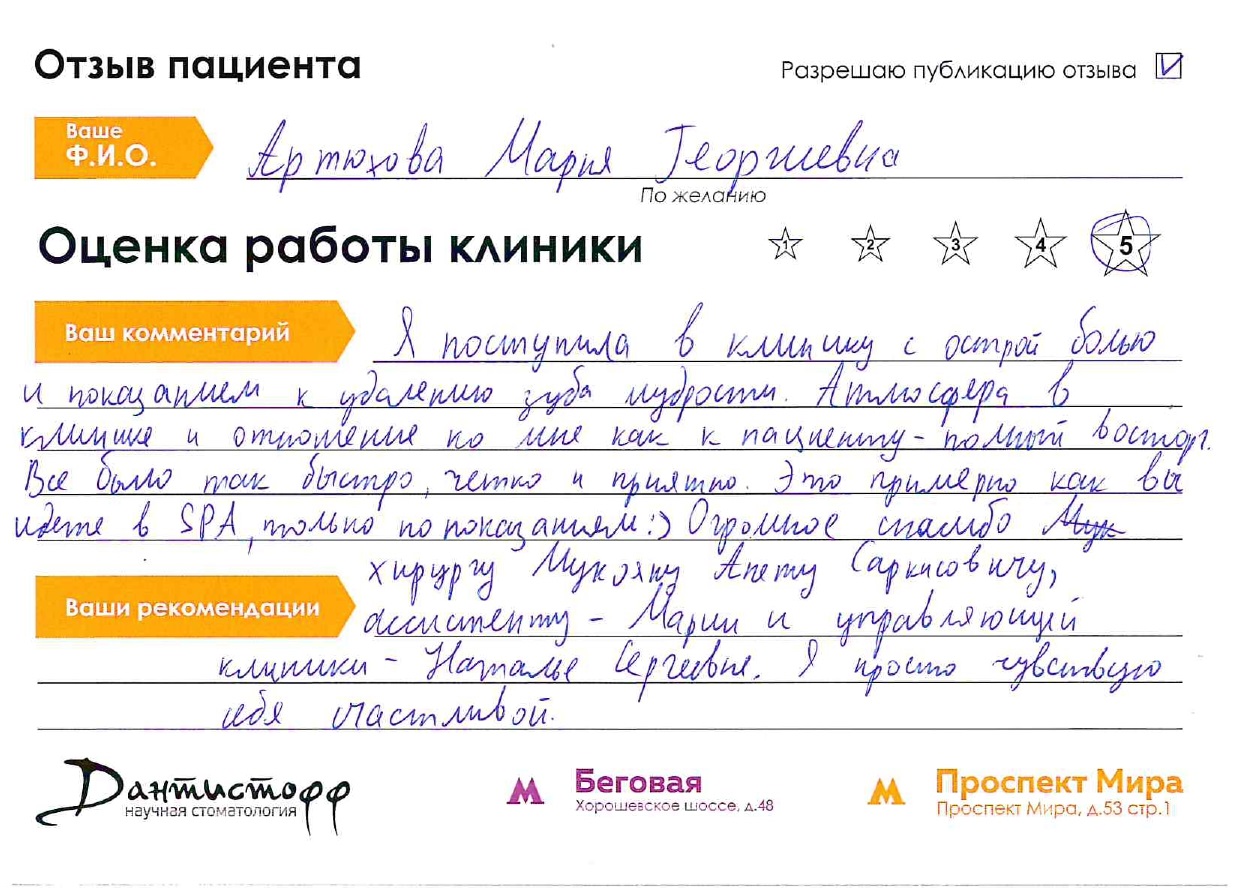 Отзыв пациента
Разрешаю публикацию отзыва
Ваше
Ф.И.О.
Артюхова Мария Георгиевна
По желанию
Оценка работы клиники
1 2 3 4 5
Ваш комментарий
Я поступила в клинику с острой болью
и показанием к удалению зуба мудрости. Атмосфера в
клинике и отношение ко мне как к пациенту - полный восторг.
Все было так быстро, четко и приятно. Это примерно как вы
идете в SPA, только по показаниям :) Огромное спасибо Мук
хирургу Мукояну Апету Саркисовичу,
Ваши рекомендации
ассистенту - Марии и управляющей
клиники - Наталье Сергеевне. Я просто чувствую
себя счастливой.
Дантистофф
научная стоматология
Беговая
Хорошевское шоссе, д.48
Проспект Мира
Проспект Мира, д.53 стр.1